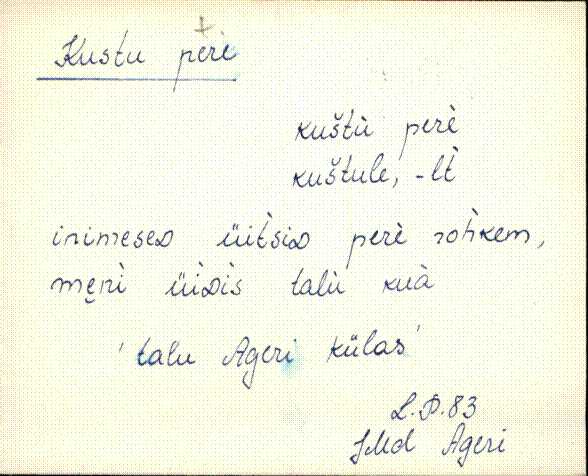 Kustu perè
kuštù perè
kuštule, -lt̀
inimeseᴅ üit̀siᴅ perè rohkem,
mẹnì üiᴅìs talù kuà
'talu Ageri külas'
L.P. 83
JMd Ageri